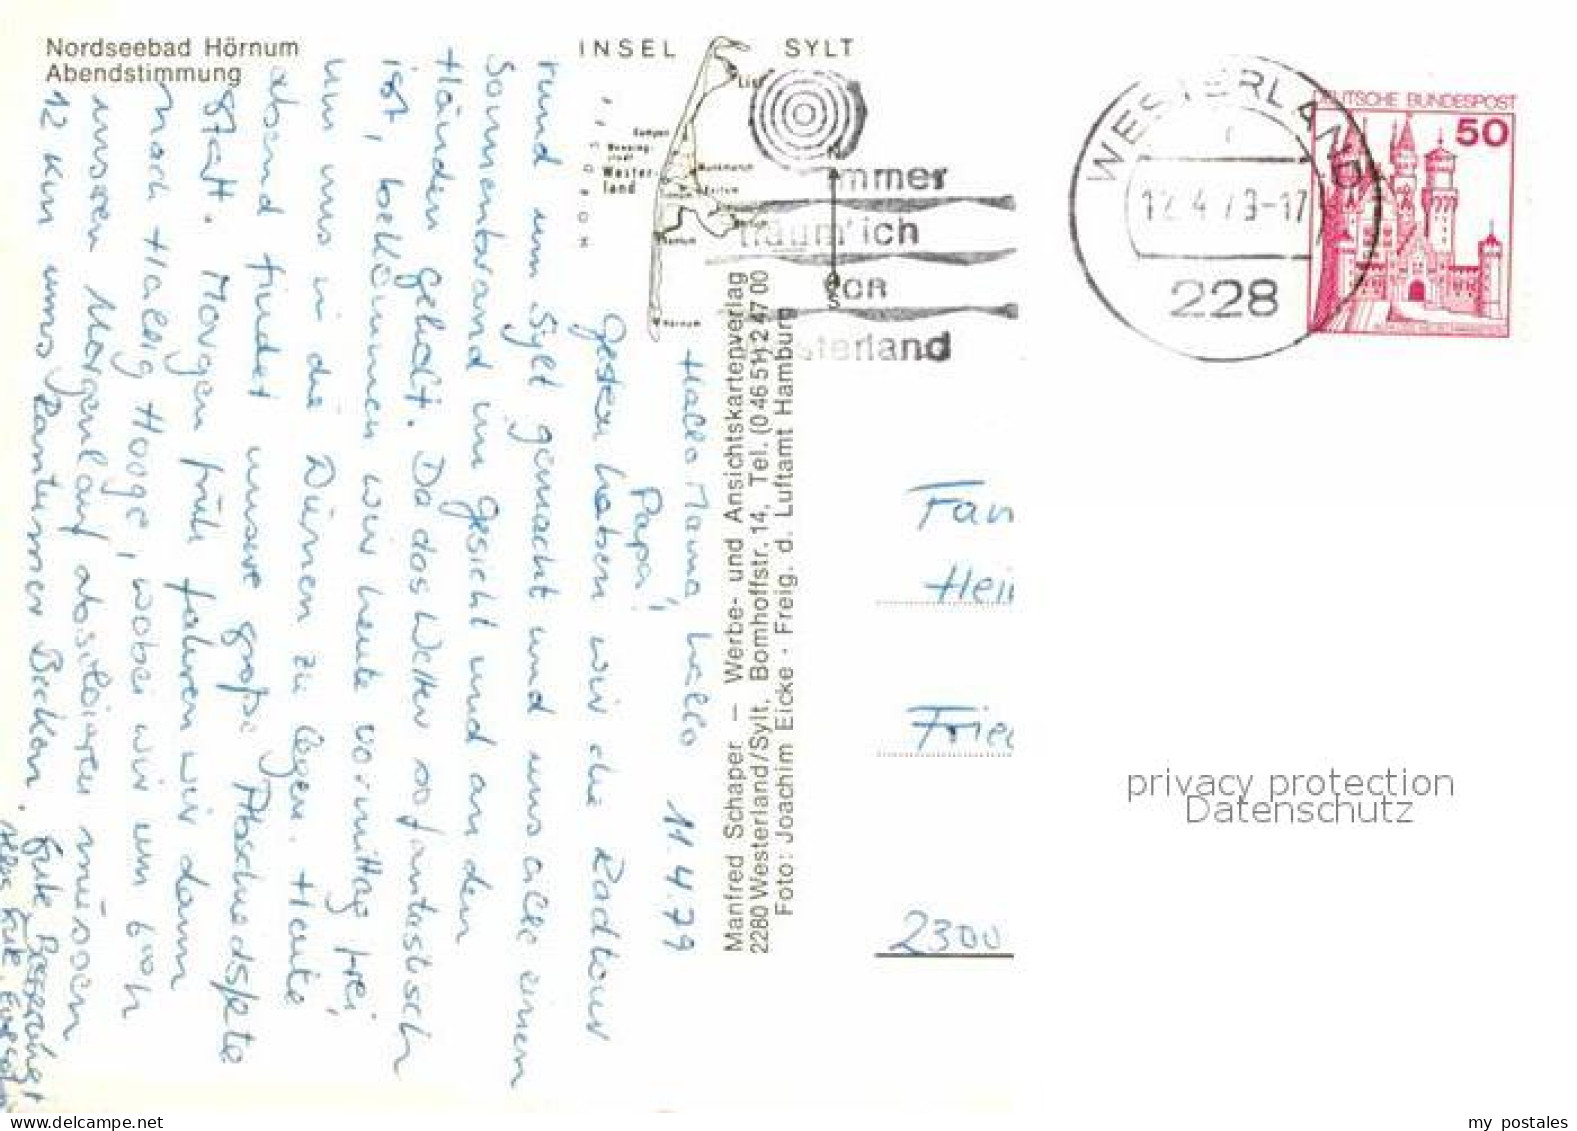 Nordseebad Hörnum
Abendstimmung
INSEL SYLT
List
Kampen
Wester-
land
Hörnum
N
S
immer
traumlich
vor
Westerland
WESTERLAND
12.4.79-17
228
DEUTSCHE BUNDESPOST
50
Manfred Schaper — Werbe- und Ansichtskartenverlag
2280 Westerland/Sylt, Bomhoffstr. 14, Tel. (0 46 51) 2 47 00
Foto: Joachim Eicke · Freig. d. Luftamt Hamburg
11.4.79
Hallo Mama hallo
Papa!
Gestern haben wir die Radtour
rund um Sylt gemacht und uns alle einen
Sonnenbrand im Gesicht und an den
Händen geholt. Da das Wetter so fantastisch
ist, bekommen wir heute vormittag frei,
um uns in die Dünen zu legen. Heute
abend findet unsere große Abschiedsfete
statt. Morgen früh fahren wir dann
nach Hallig Hooge, wobei wir um 6ooh
unseren Morgenlauf absolvieren müssen
12 km ums Rantumer Becken. Gute Besserung!
Alles Gute, Eure
Fam
Hein
Fried
2300
privacy protection
Datenschutz
my postales